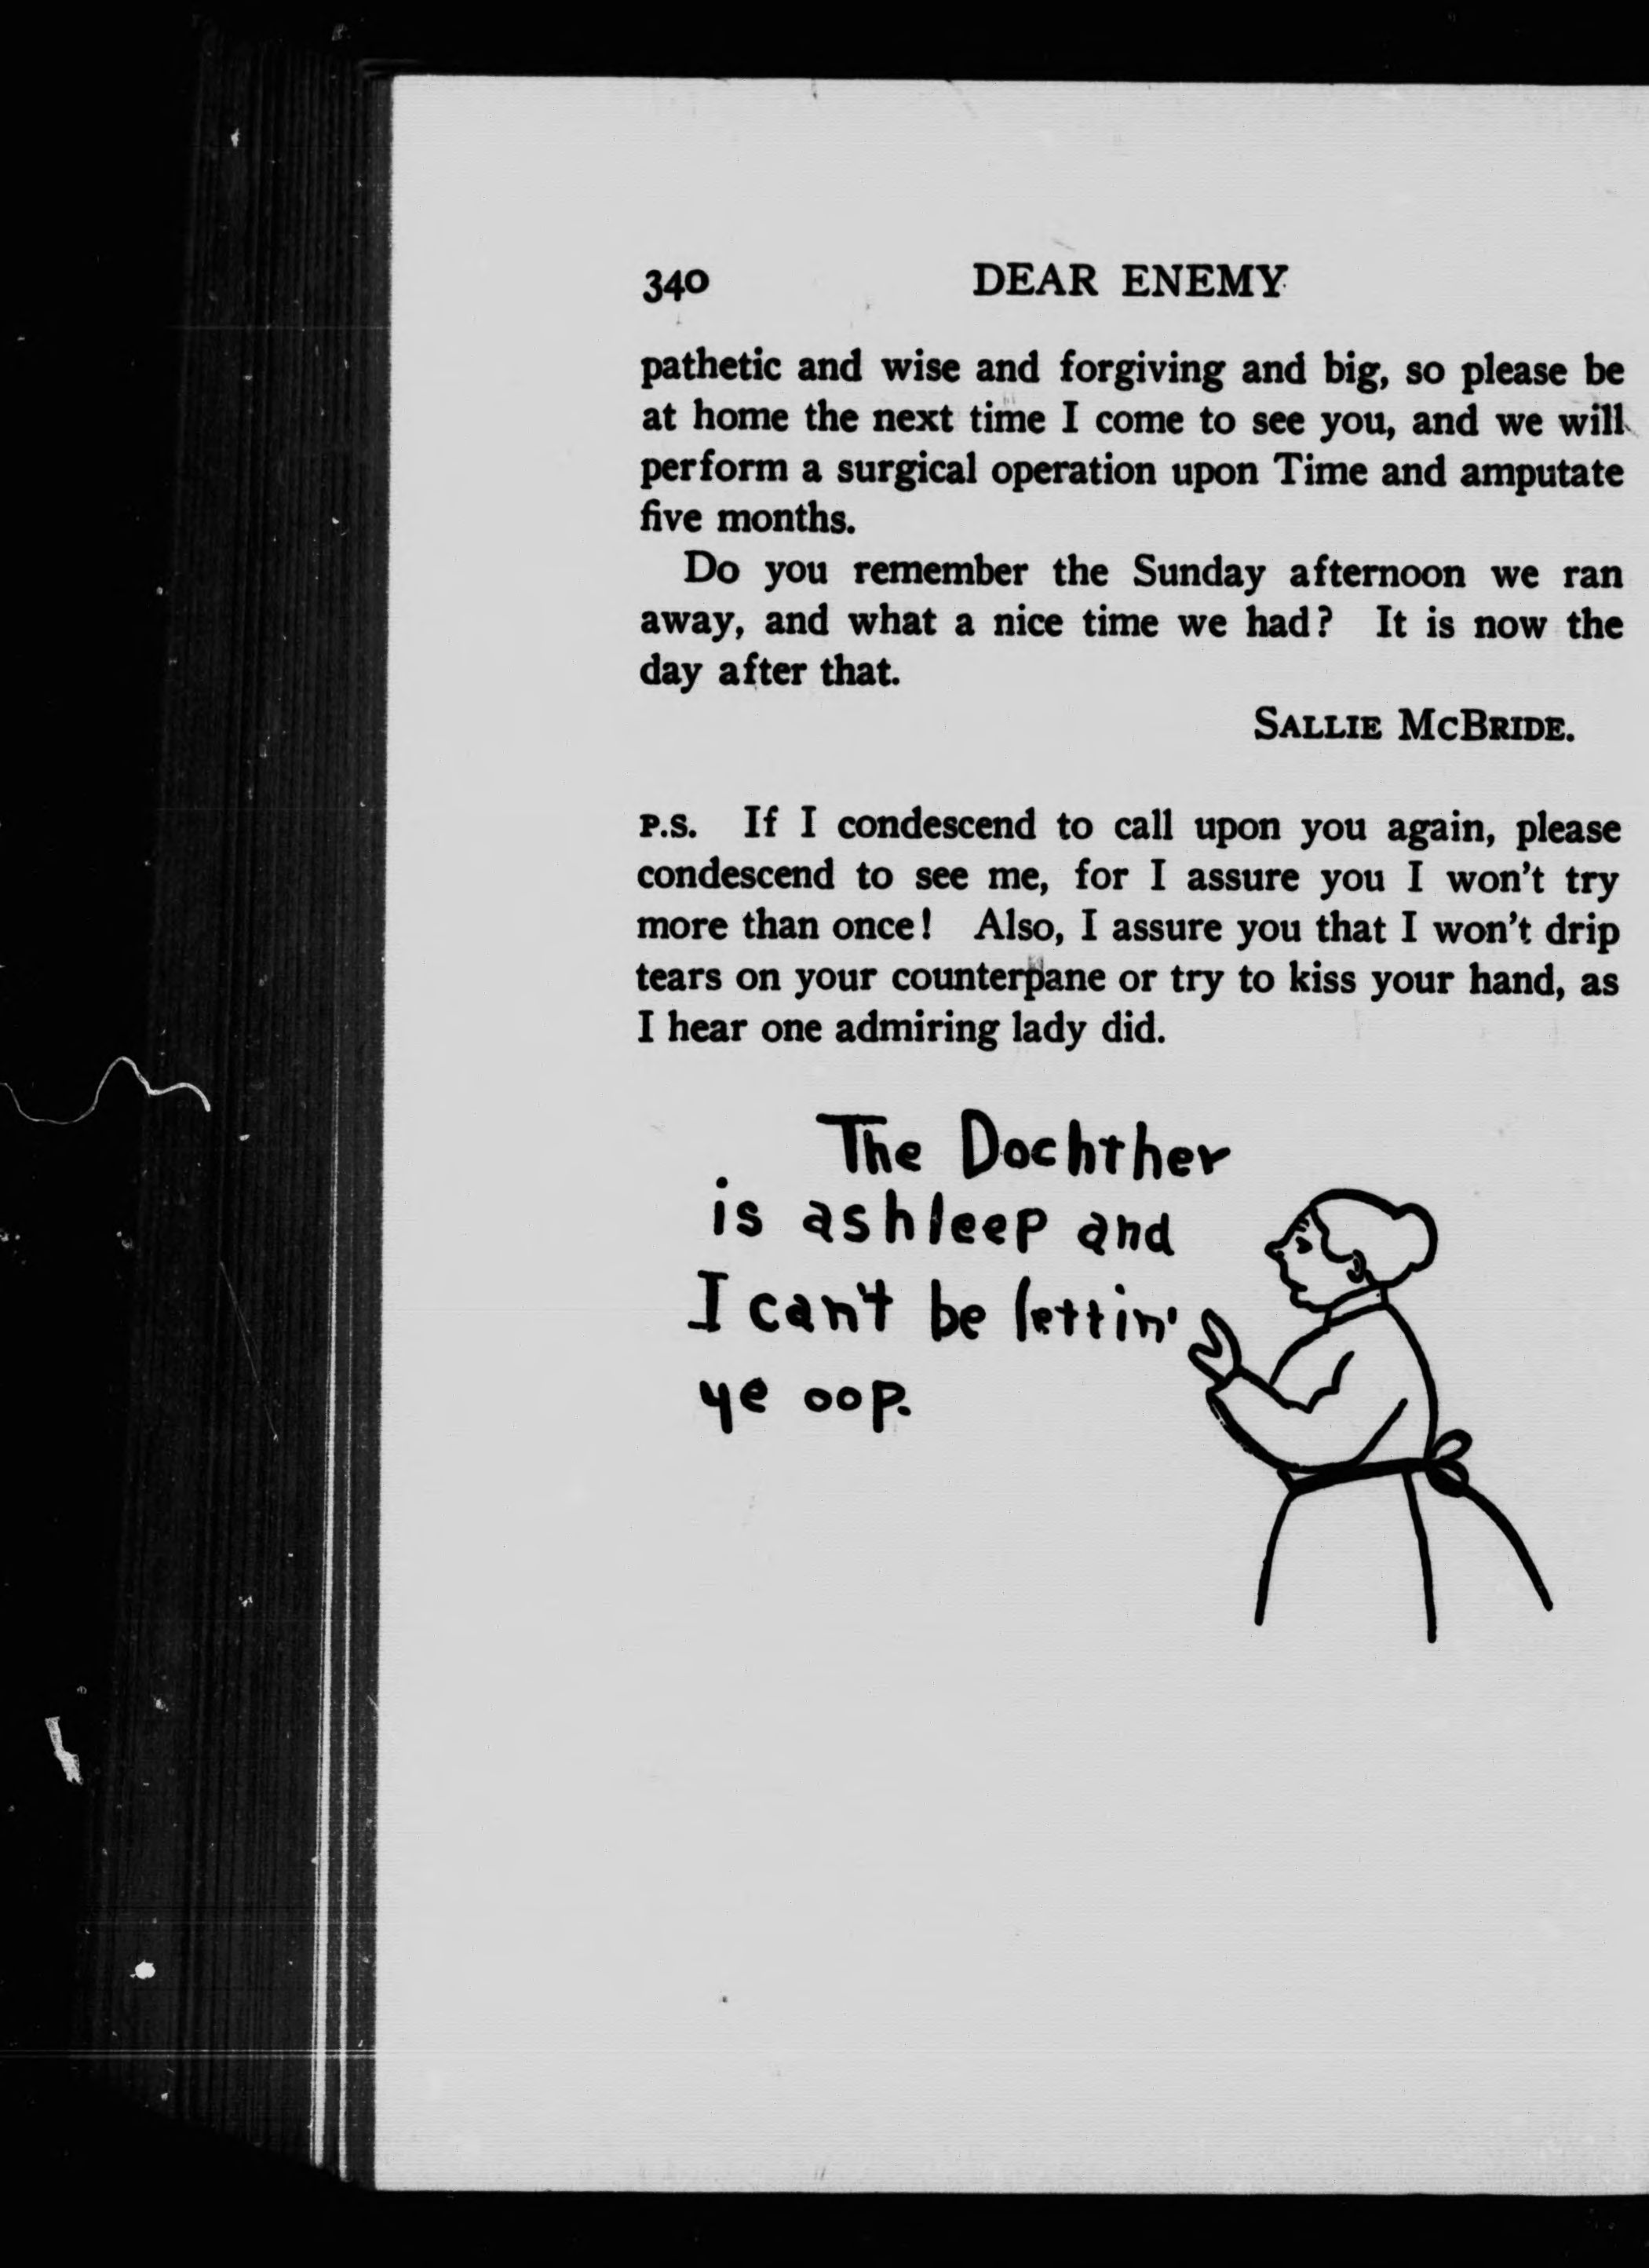 340 DEAR ENEMY
pathetic and wise and forgiving and big, so please be
at home the next time I come to see you, and we will
perform a surgical operation upon Time and amputate
five months.
Do you remember the Sunday afternoon we ran
away, and what a nice time we had? It is now the
day after that.
SALLIE MCBRIDE.
P.S. If I condescend to call upon you again, please
condescend to see me, for I assure you I won't try
more than once! Also, I assure you that I won't drip
tears on your counterpane or try to kiss your hand, as
I hear one admiring lady did.
The Dochther
is ashleep and
I can't be lettin'
ye oop.